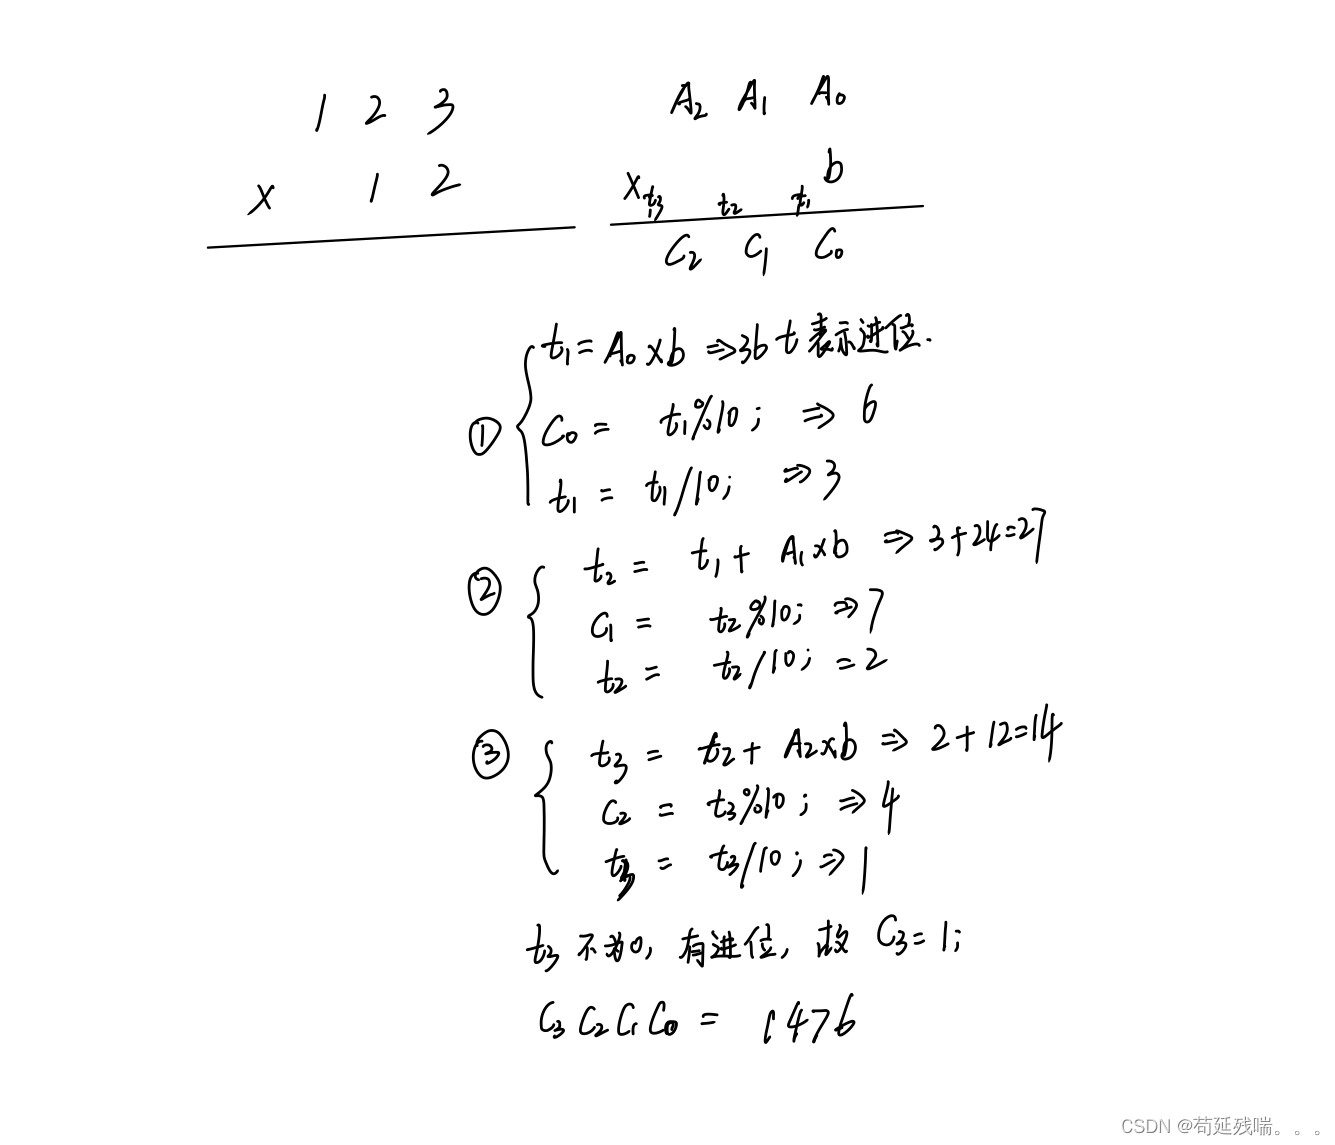 1 2 3
x 1 2
A₂ A₁ A₀
x b
t₃ t₂ t₁
C₂ C₁ C₀
① t₁ = A₀ x b ⇒ 36 t 表示进位.
C₀ = t₁%10; ⇒ 6
t₁ = t₁/10; ⇒ 3
② t₂ = t₁ + A₁xb ⇒ 3+24=27
C₁ = t₂%10; ⇒ 7
t₂ = t₂/10; = 2
③ t₃ = t₂ + A₂xb ⇒ 2+12=14
C₂ = t₃%10; ⇒ 4
t₃ = t₃/10; ⇒ 1
t₃ 不为0, 有进位, 故 C₃=1;
C₃ C₂ C₁ C₀ = 1476
CSDN @苟延残喘。。。